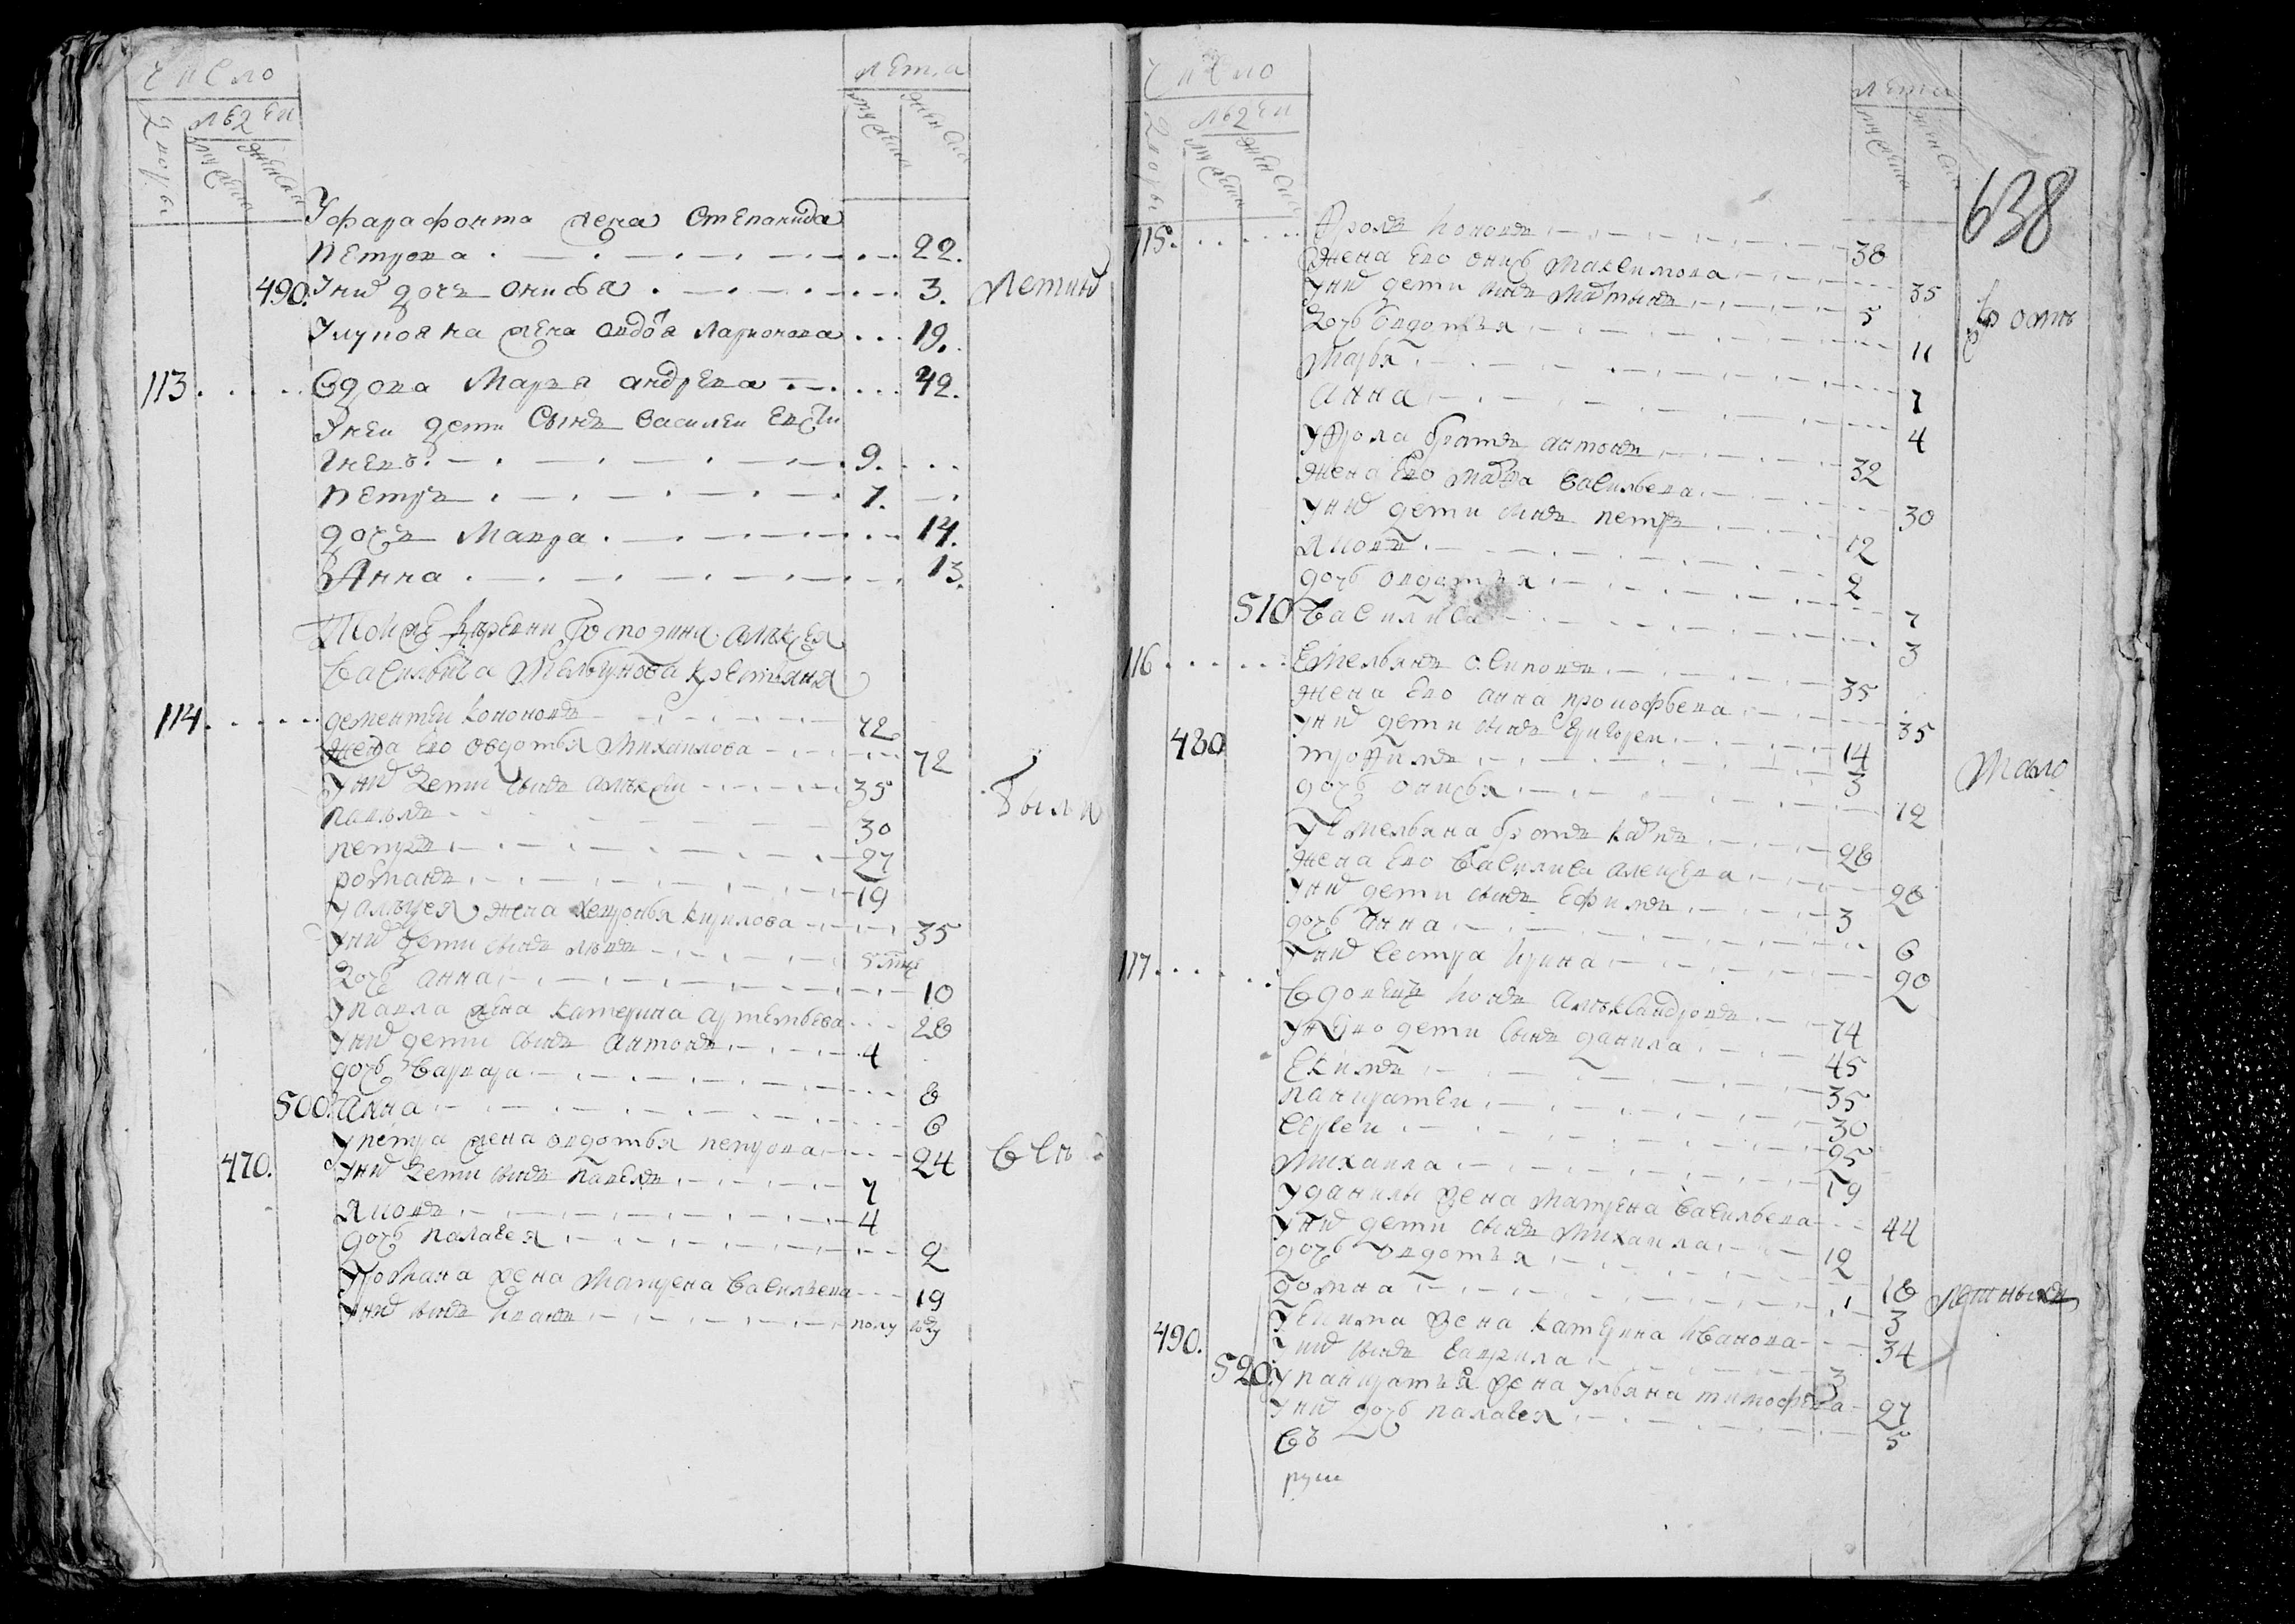 Число
Дворы
людей
мужеска
женска
Лета
мужеска
женска
У фарафонта жена Степанида
Петрова 22.
490. У них дочь Анисья 3. Летных
жена Авдотья Ларионова 19.
113. Вдова Марья Андреева 42.
У неи дети Сынъ Василеи
9.
Петръ 7.
дочь Мавра 14.
Анна 13.
Той же деревни Господина Алексея
Васильича Мельгунова крестьяня
114. дементеи Кононовъ 72
жена ево овдотья Михаилова 72
у них дети сынъ алексеи 35
были
павелъ 30
петръ 27
романъ 19
у алексея жена Хевронья Кирилова 35
у них дети сынъ 5
дочь анна 10
у павла жена катерина артемьева 28
у них дети сынъ антонъ 4
дочь варвара 8
500. Анна 6
у петра жена овдотья петрова 24
470. у них дети сынъ павелъ 7
яковъ 4
дочь палагея 2
у романа жена Матрена васильева 19
у них сынъ иванъ полу году
Число
Дворы
людей
мужеска
женска
Лета
мужеска
женска
638
115. Фролъ Кононовъ 38
жена ево Максимова 35
у них дети сынъ 5
дочь овдотья 11
Марья 7
Анна 4
у Фрола братъ антонъ 32
жена ево васильева 30
у них дети сынъ петръ 12
яковъ 2
дочь овдотья 7
510 василиса 3
116. Емельянъ осиповъ 35
жена ево анна прокофьева 35
у них дети сынъ григореи 14
480 трофимъ 3
Мало
дочь анисья 12
у Емельяна братъ карпъ 28
жена ево василиса алексеева 28
у них дети сынъ ефимъ 3
дочь анна 6
у них сестра ирина 20
117. вдовецъ александровъ 74
у нево дети сынъ данила 45
Екимъ 35
панкратеи 30
сергеи 25
михаила 19
у данилы жена матрена васильева 44
у них дети сынъ михаила 12
дочь овдотья 18
летныхъ
домна 3
у екима жена катерина иванова 34
490. у них сынъ гаврила 3
520. у панкратья жена ульяна тимофеева 27
у них дочь палагея 5